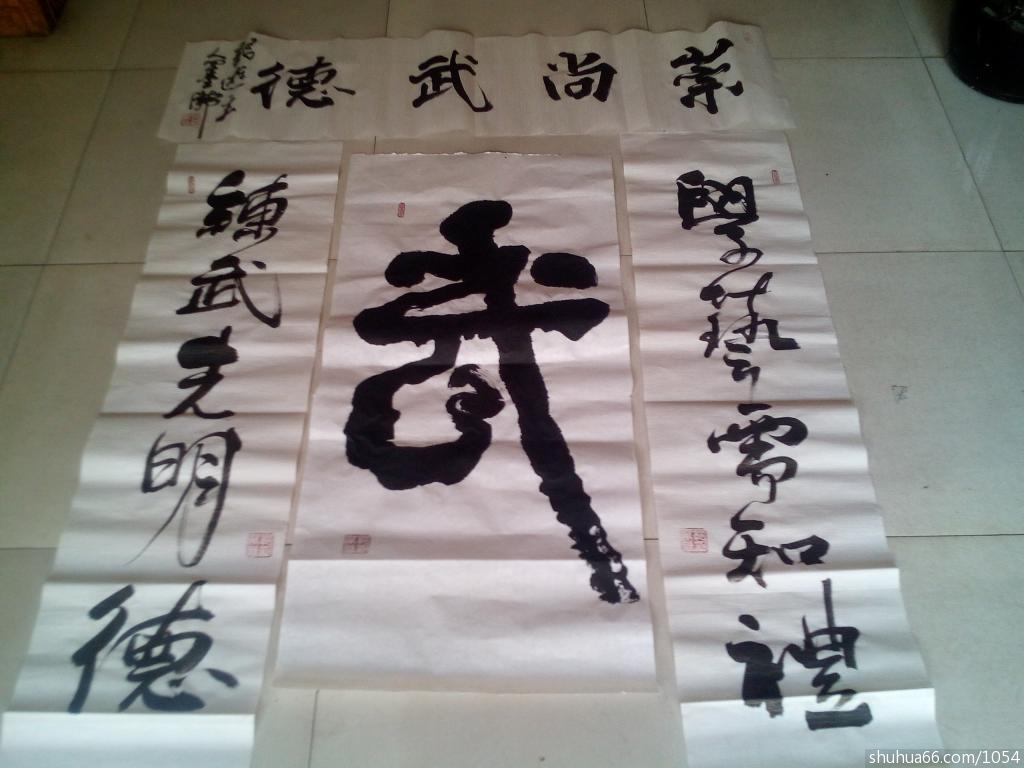 崇尚武德
學藝需知禮
武
練武先明德
shuhua66.com/1054